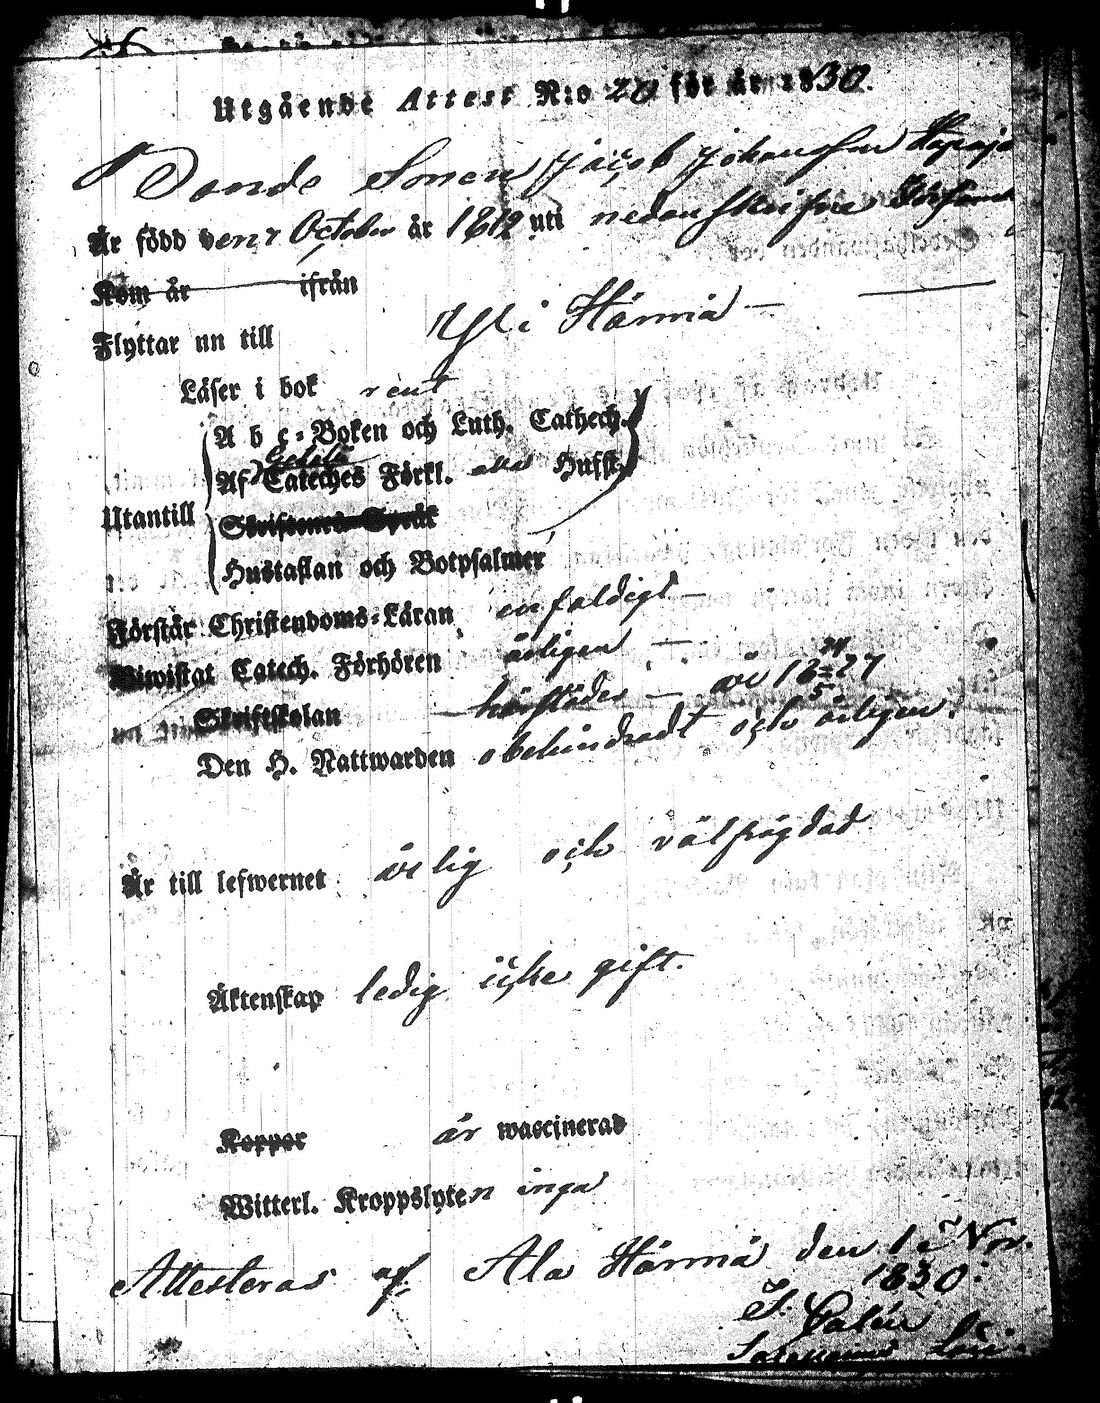 Utgående Attest N:o 20 för år 1830.
Bonde Sonen Jacob Johansson
Är född den 7 October år 1812 uti nedanskrifne
Kom år ifrån
Flyttar nu till Ylihärmä
Läser i bok rent
A b c-Boken och Luth. Cathech.
Af Cateches Förkl. Husst.
Utantill
Skriftenes Språk
Hustaflan och Botpsalmer
Förstår Christendoms-Läran enfaldigt
Biwistat Catech. Förhören årligen
Skriftskolan härstädes år 1827
Den H. Nattwarden obehindradt och årligen.
Är till lefwernet ärlig och välfrägdad
Äktenskap ledig icke gift.
Koppor är waccinerad
Witterl. Kroppslyten inga
Attesteras af Ala Härmä den 1 Nov.
1830.